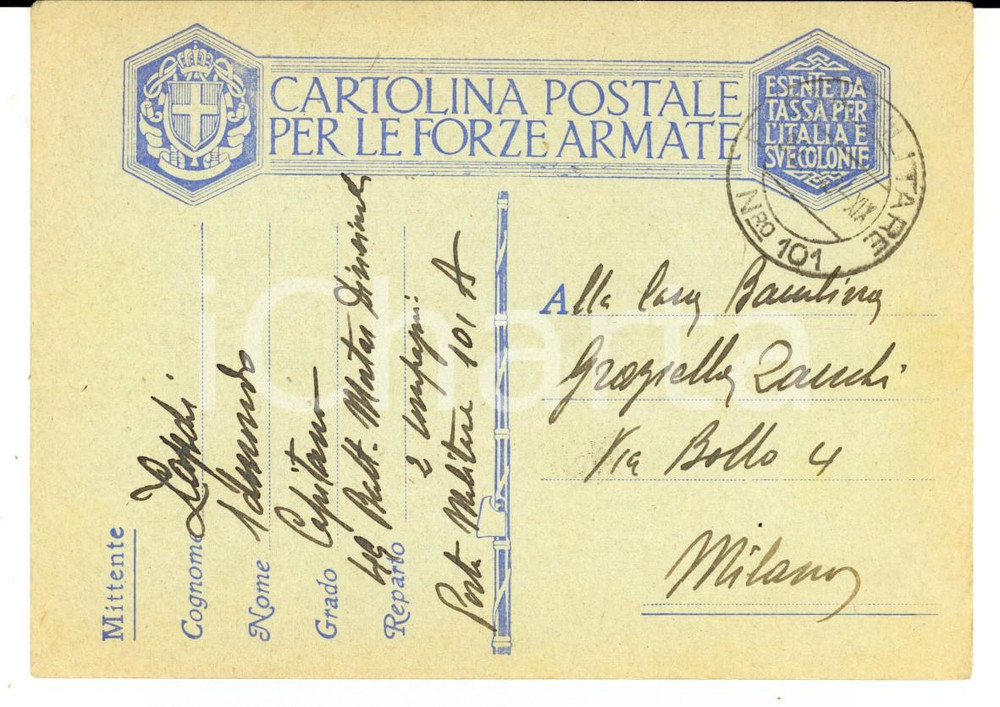 CARTOLINA POSTALE
PER LE FORZE ARMATE
ESENTE DA
TASSA PER
L'ITALIA E
SVE COLONIE
MILITARE
XIX
NRO 101
Alla Cara Bambina
Graziella Zanchi
Via Bollo 4
Milano
Mittente
Cognome
Nome
Grado Capitano
Reparto 49 Batt. Mortai
2 compagni
Posta Militare 101 A
iCharta